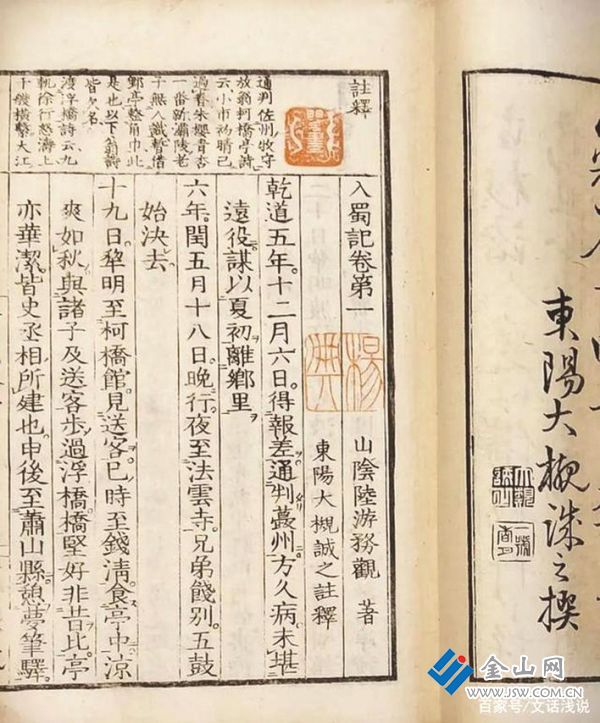 東陽大槻誠之撰
註釋
通判佐州牧守
放翁柯橋亭詩
云小市初晴已
過春朱櫻青杏
一番新灞陵老
子無人識暫借
郵亭整角巾此
是也以下翁詩
皆名
渡浮橋詩云九
軌徐行怒濤上
橫繫大江
入蜀記卷第一
山陰陸游務觀 著
東陽大槻誠之註釋
乾道五年。十二月六日。得報差通判夔州。方久病未堪
遠役。謀以夏初離鄉里
六年。閏五月十八日。晚行。夜至法雲寺。兄弟餞別。五鼓
始決去
十九日。黎明至柯橋館。見送客。巳時至錢清。食亭中。涼
爽如秋。與諸子及送客步過浮橋。橋堅好非昔比。亭
亦華潔。皆史丞相所建也。申後至蕭山縣。憩夢筆驛。
金山网
www.JSW.com.cn
百家号/文话浅说